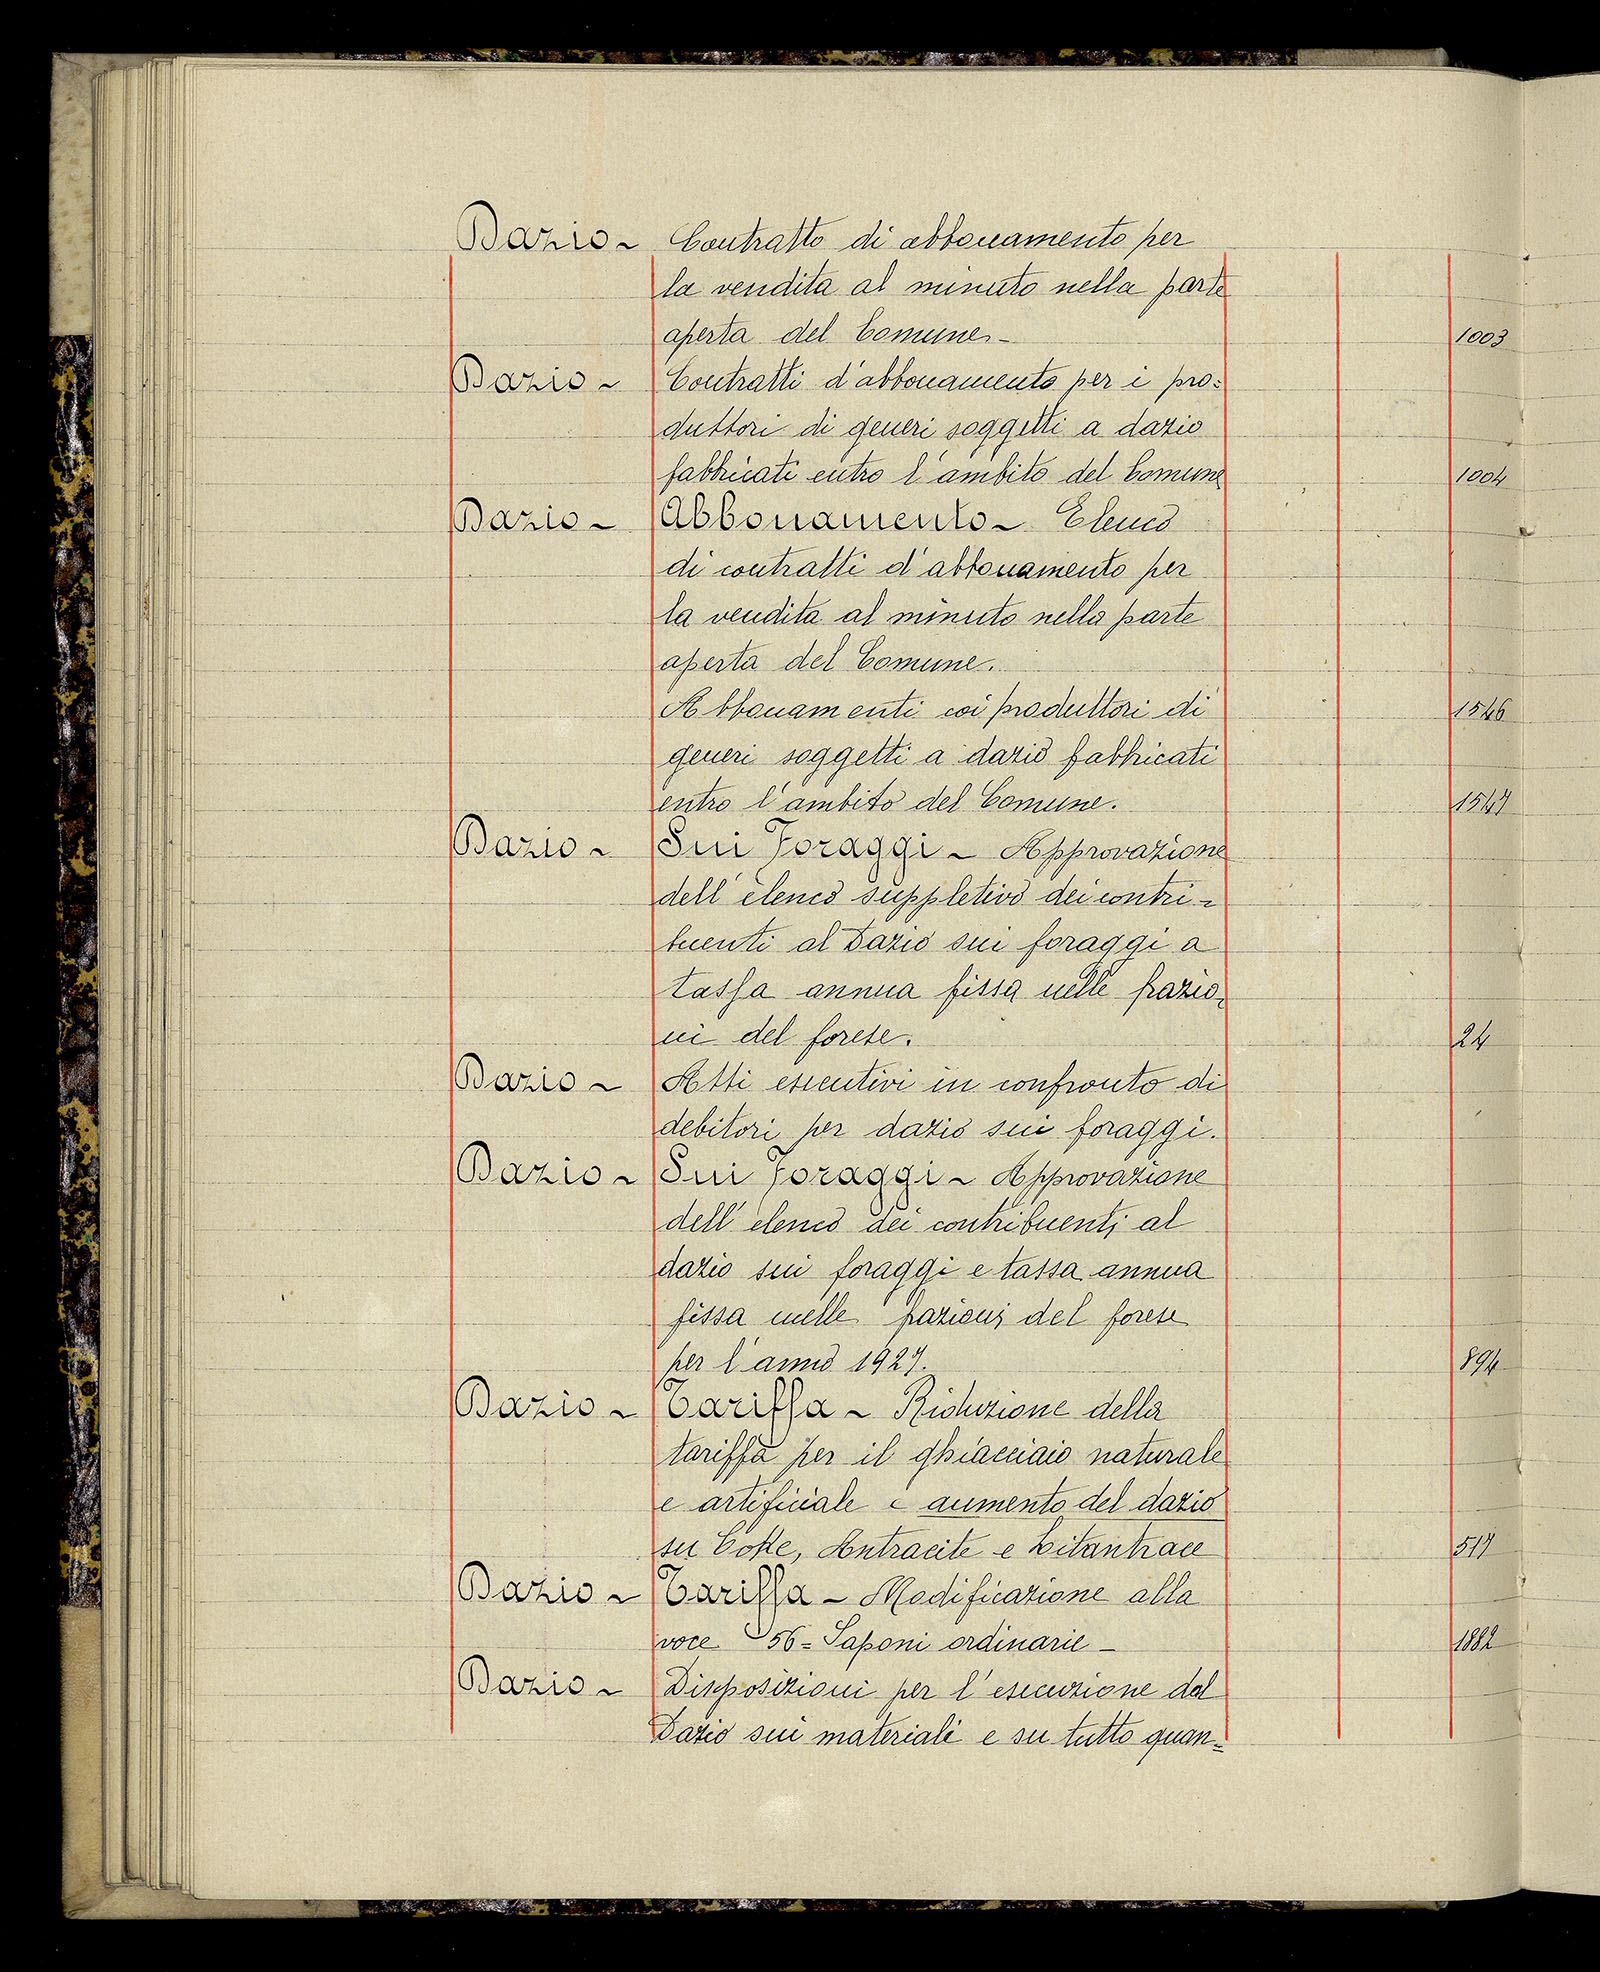 Dazio ~ Contratto di abbonamento per
la vendita al minuto nella parte
aperta del Comune - 1003
Dazio ~ Contratti d'abbonamento per i pro=
duttori di generi soggetti a dazio
fabbricati entro l'ambito del Comune 1004
Dazio ~ Abbonamento ~ Elenco
di contratti d'abbonamento per
la vendita al minuto nella parte
aperta del Comune.
Abbonamenti coi produttori di 1546
generi soggetti a dazio fabbricati
entro l'ambito del Comune. 1547
Dazio ~ Sui Foraggi ~ Approvazione
dell'elenco suppletivo dei contri=
buenti al Dazio sui foraggi a
tassa annua fissa nelle frazio=
ni del forese. 24
Dazio ~ Atti esecutivi in confronto di
debitori per dazio sui foraggi.
Dazio ~ Sui Foraggi ~ Approvazione
dell'elenco dei contribuenti al
dazio sui foraggi e tassa annua
fissa nelle frazioni del forese
per l'anno 1927. 894
Dazio ~ Tariffa ~ Riduzione della
tariffa per il ghiacciaio naturale
e artificiale e aumento del dazio
su Coke, Antracite e Litantrace 517
Dazio ~ Tariffa ~ Modificazione alla
voce 56 = Saponi ordinarie - 1882
Dazio ~ Disposizioni per l'esecuzione del
Dazio sui materiali e su tutto quan=